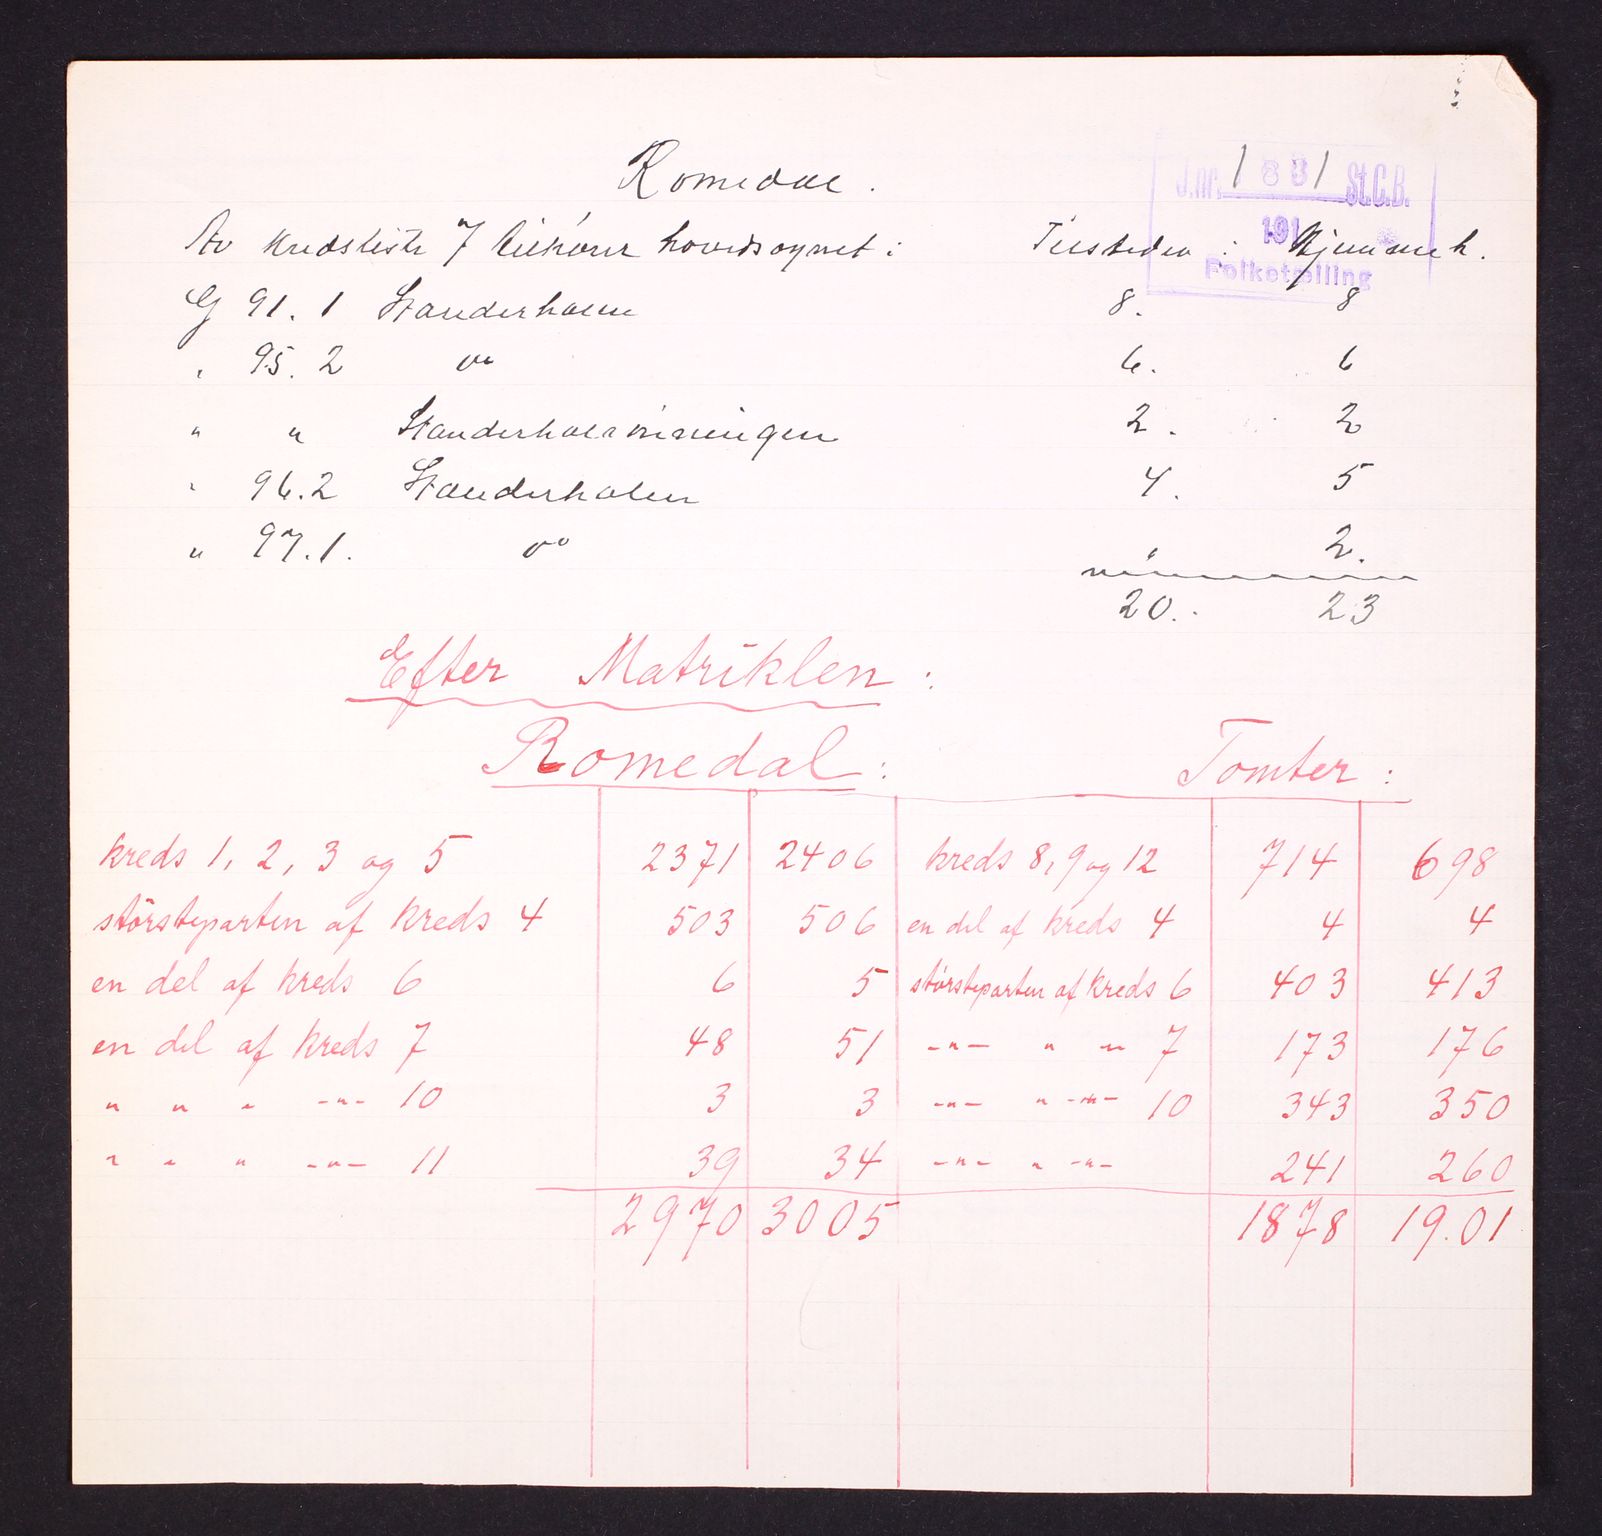 J.nr. 1881 St.C.B.
191
Folketælling
Romedal.
Av kredsliste 7 tilhører hovedsognet: Tilstedev: Hjemmeh.
G 91.1 Standerholm 8. 8
" 95.2 do 6. 6
" " 2. 2
" 96.2 Standerholen 4. 5
" 97.1. do " 2.
20. 23
Efter Matriklen:
Romedal: Tomter:
kreds 1, 2, 3 og 5 2371 2406 kreds 8, 9 og 12 714 698
störsteparten af kreds 4 503 506 en del af kreds 4 4 4
en del af kreds 6 6 5 störsteparten af kreds 6 403 413
en del af kreds 7 48 51 -"- " " 7 173 176
" " " -"- 10 3 3 -"- " -"- 10 343 350
" " " -"- 11 39 34 -"- " -"- 241 260
2970 3005 1878 19.01